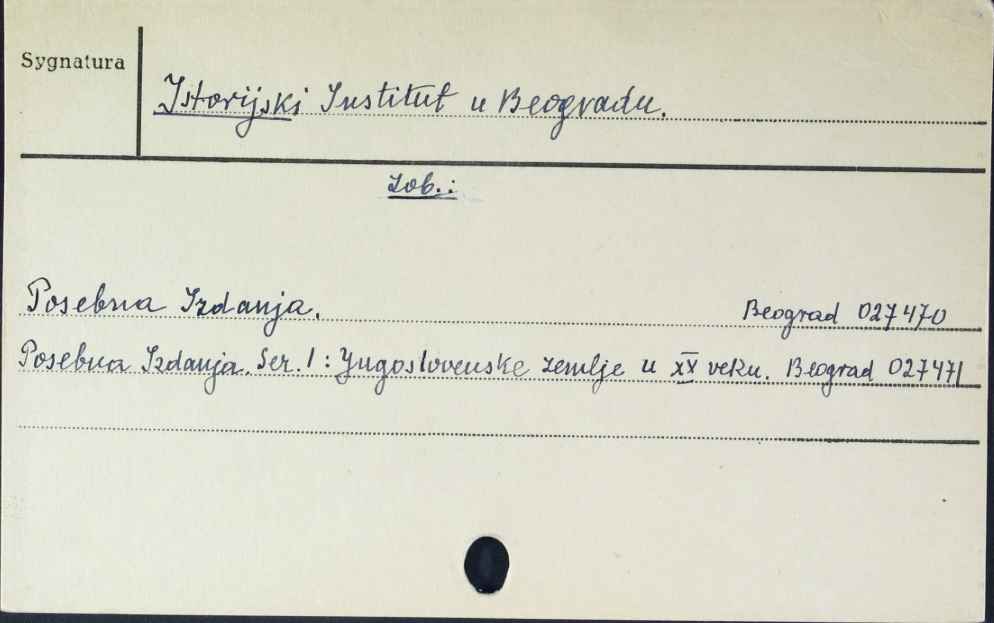 Sygnatura
Istorijski Institut u Beogradu.
Zob.:
Posebna Izdanja. Beograd 027470
Posebna Izdanja. Ser. 1: Jugoslovenske zemlje u XX veku. Beograd 027471